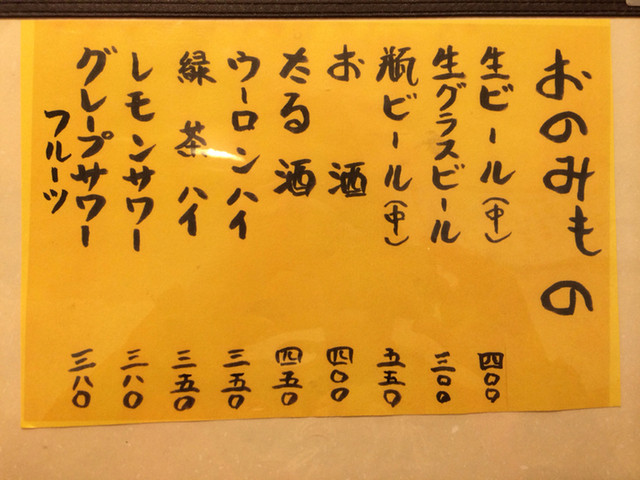 おのみもの
生ビール(中) 四〇〇
生グラスビール 三〇〇
瓶ビール(中) 五五〇
お酒 四〇〇
たる酒 四五〇
ウーロンハイ 三五〇
緑茶ハイ 三五〇
レモンサワー 三八〇
グレープサワー 三八〇
フルーツ